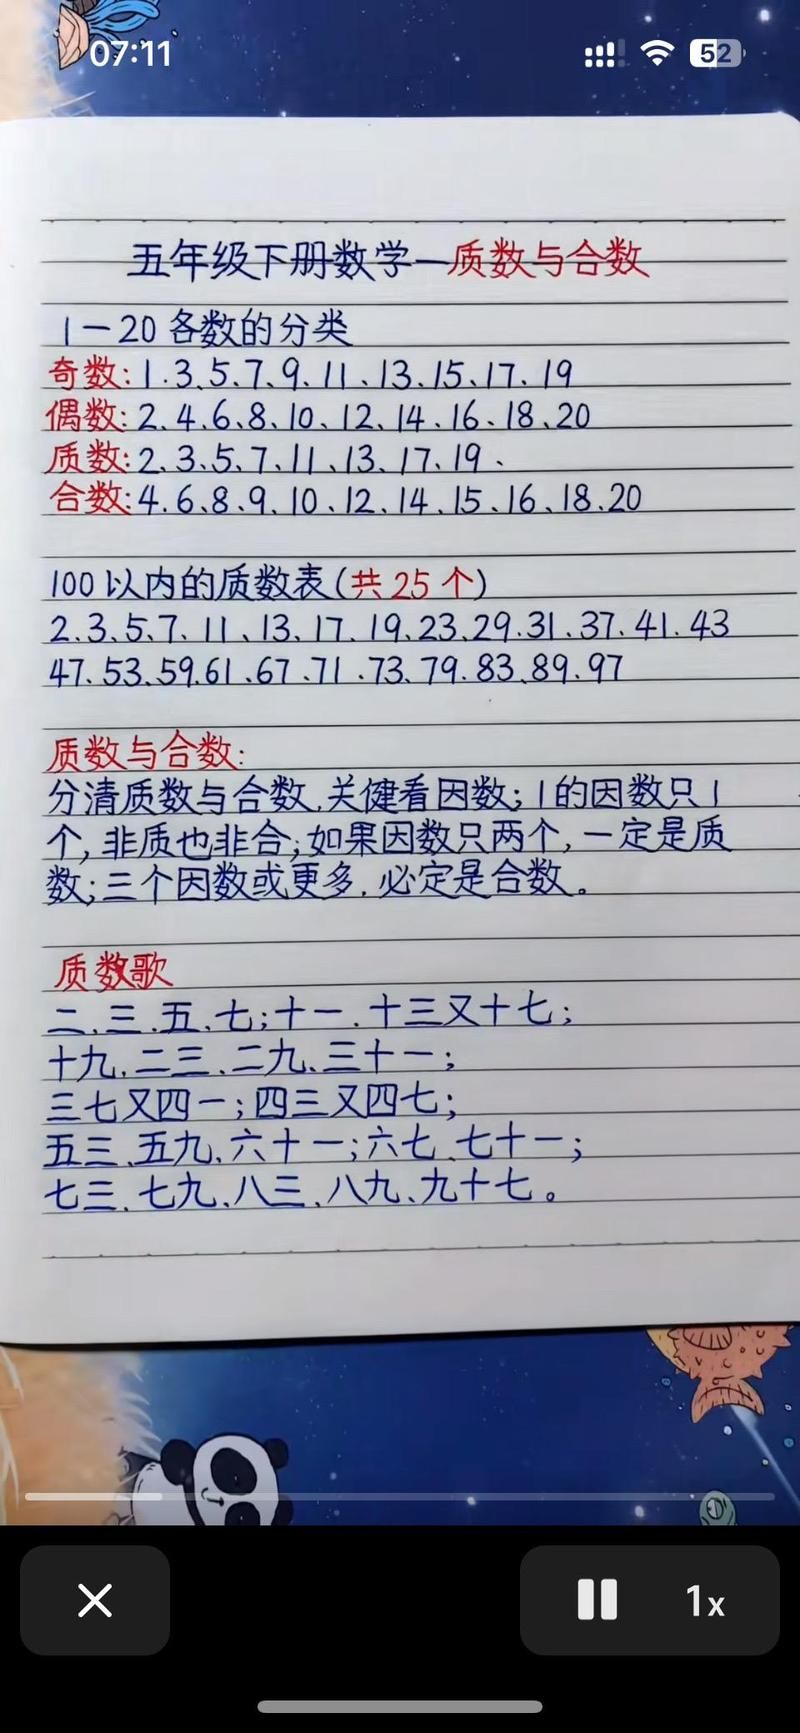 07:11
52
五年级下册数学—质数与合数
1—20各数的分类
奇数:1.3、5、7、9、11、13、15、17、19
偶数:2、4、6、8、10、12、14、16、18、20
质数:2、3、5、7、11、13、17、19、
合数:4.6、8、9、10、12、14、15、16、18、20
100以内的质数表(共25个)
2.3、5、7、11、13、17、19、23、29.31、37、41.43
47、53、59.61、67、71、73、79、83、89、97
质数与合数:
分清质数与合数,关健看因数;1的因数只1
个,非质也非合;如果因数只两个,一定是质
数;三个因数或更多,必定是合数。
质数歌
二、三、五、七;十一、十三又十七;
十九、二三、二九、三十一;
三七又四一;四三又四七;
五三、五九、六十一;六七、七十一;
七三、七九、八三、八九、九十七。
1x